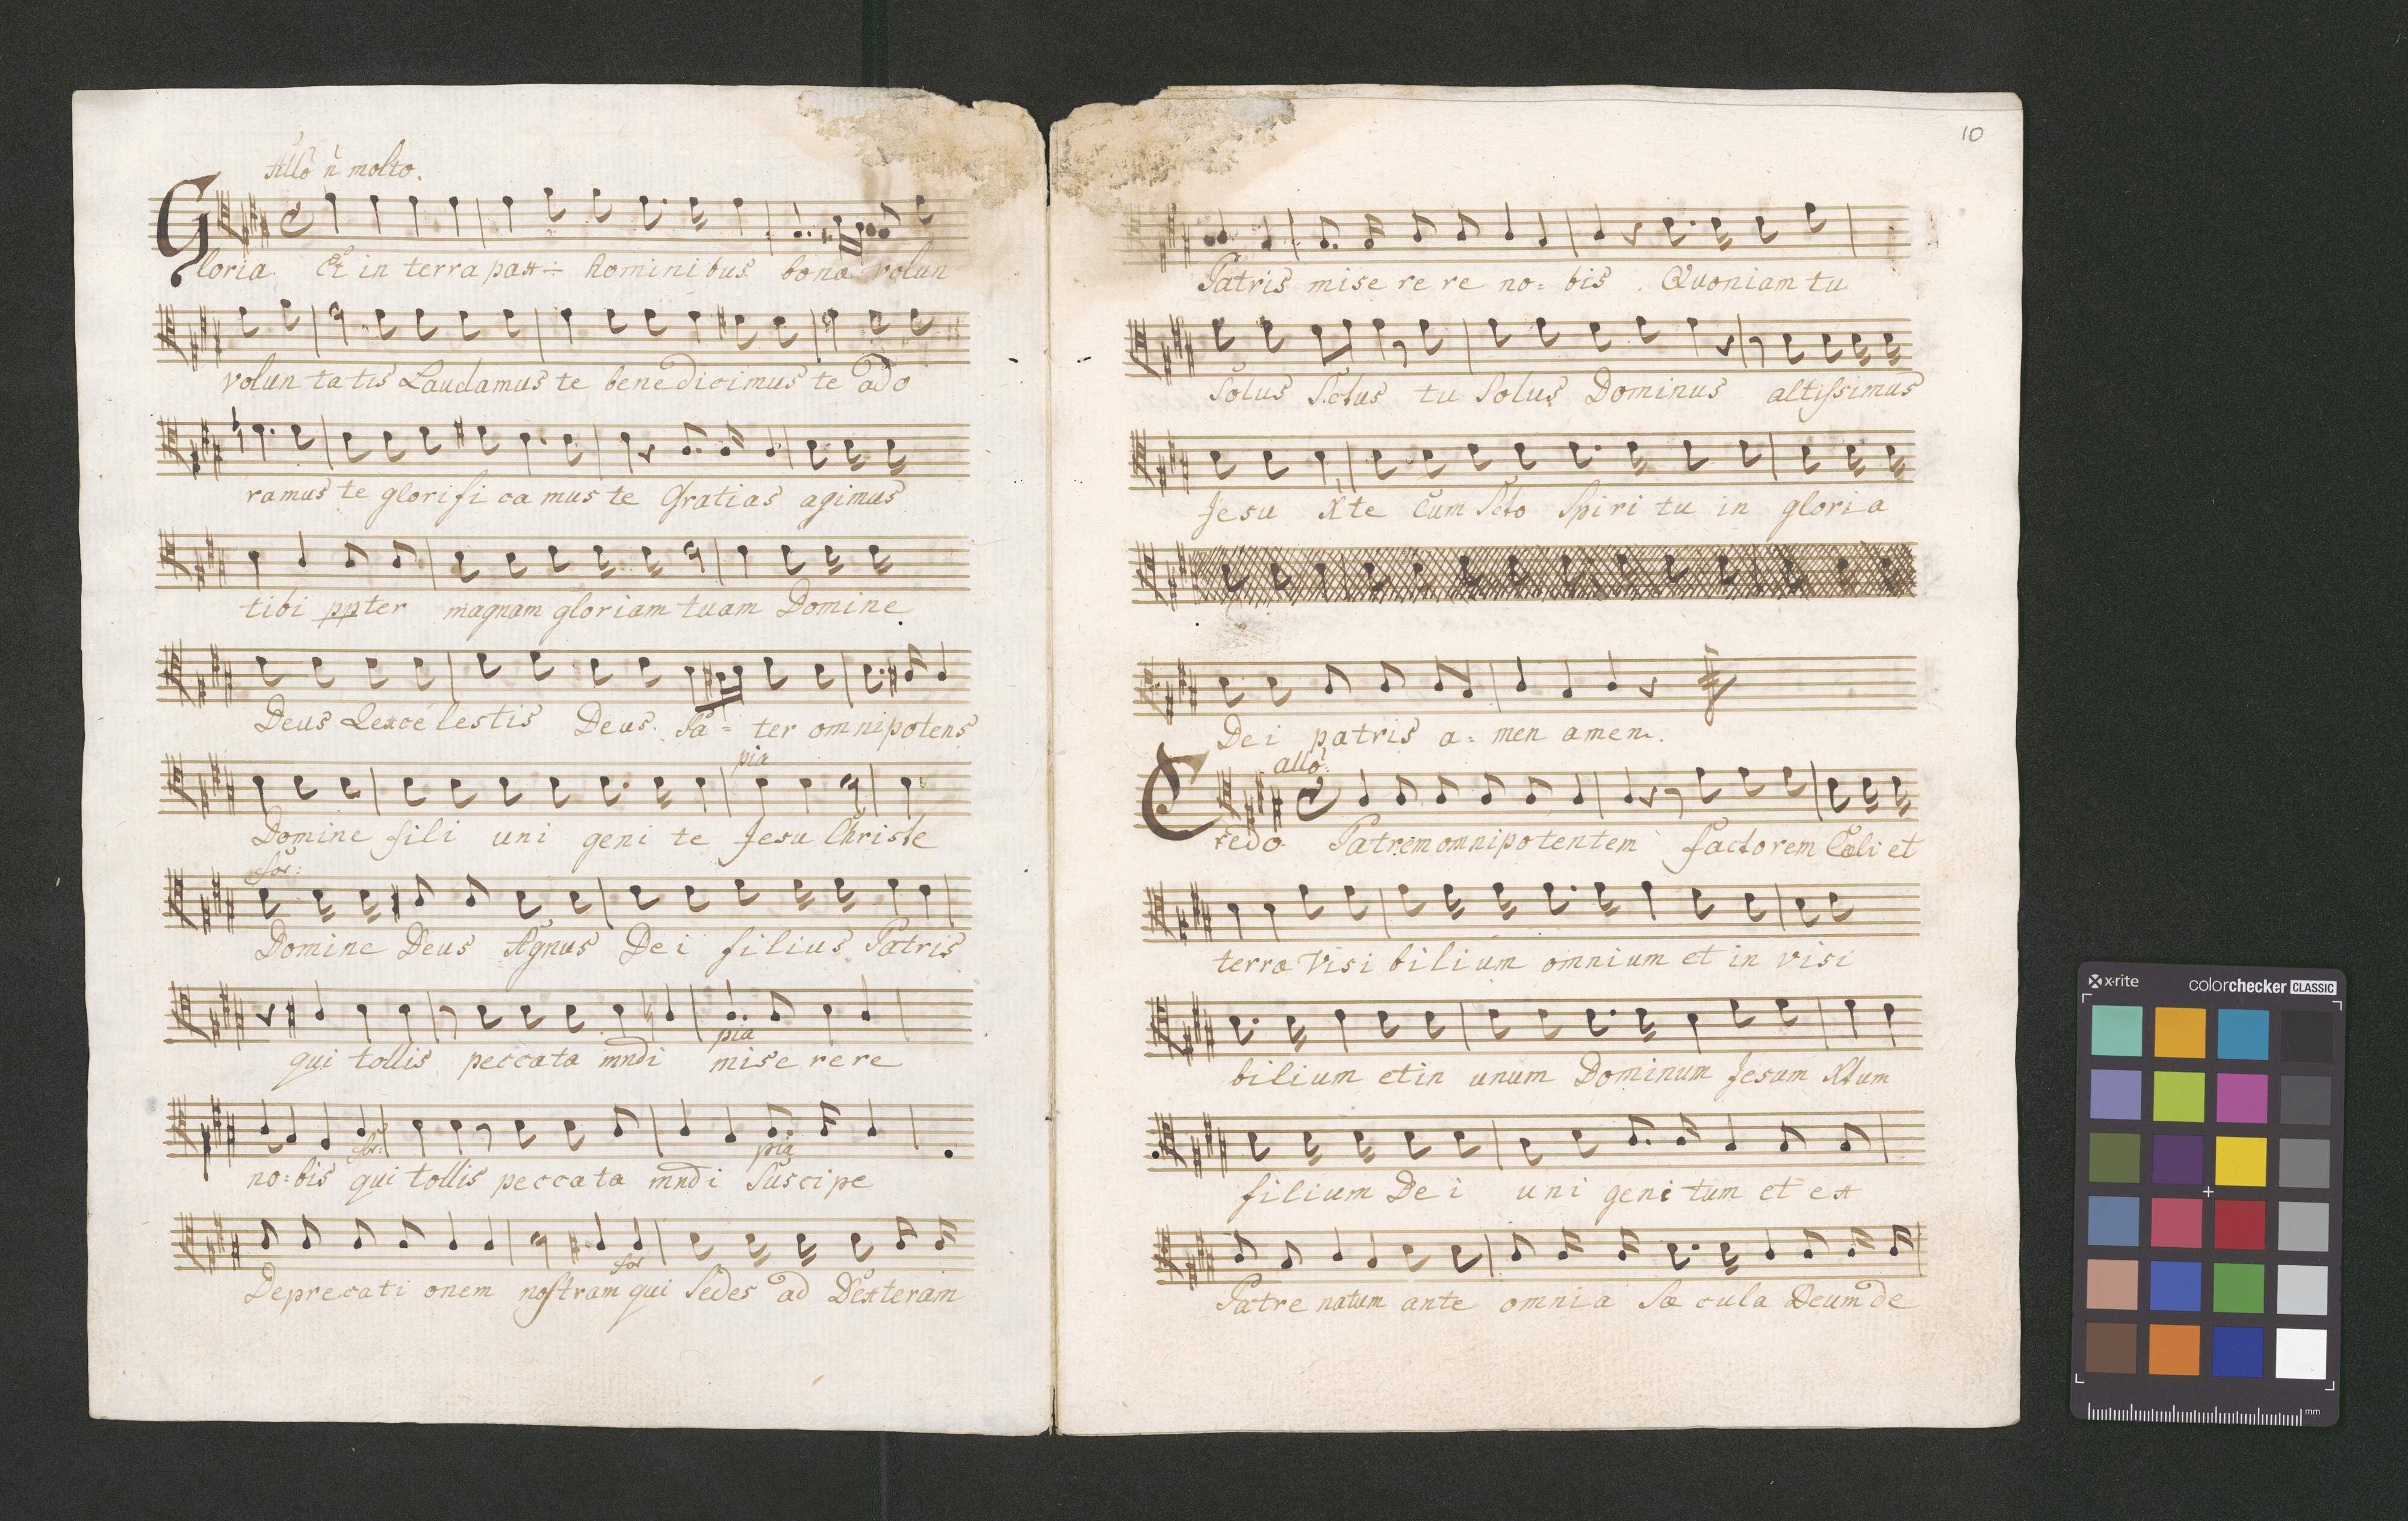 Allo n molto.
Gloria Et in terra pax hominibus bona volun
voluntatis Laudamus te benedicimus te ado
ramus te glorifi ca mus te Gratias agimus
tibi ppter magnam gloriam tuam Domine
Deus Rex cé lestis Deus Pa = ter omnipotens
pia
Domine fili uni geni te Jesu Christe
for:
Domine Deus Agnus Dei filius Patris
qui tollis peccata mndi mise re re
pia
no = bis qui tollis peccata mndi Suscipe
for: pia
Deprecati onem nostram qui Sedes ad Dexteram
for
10
Patris mise re re no = bis . Quoniam tu
Solus Sctus tu Solus Dominus altissimus
Jesu Xte Cum Scto Spiri tu in gloria
Dei patris a = men amen.
allo:
Credo Patrem omnipotentem factorem Cœli et
terræ Visi bilium omnium et in visi
bilium et in unum Dominum Jesum Xtum
filium De i uni geni tum et ex
Patre natum ante omnia Sæ cula Deum de
x-rite colorchecker CLASSIC
mm